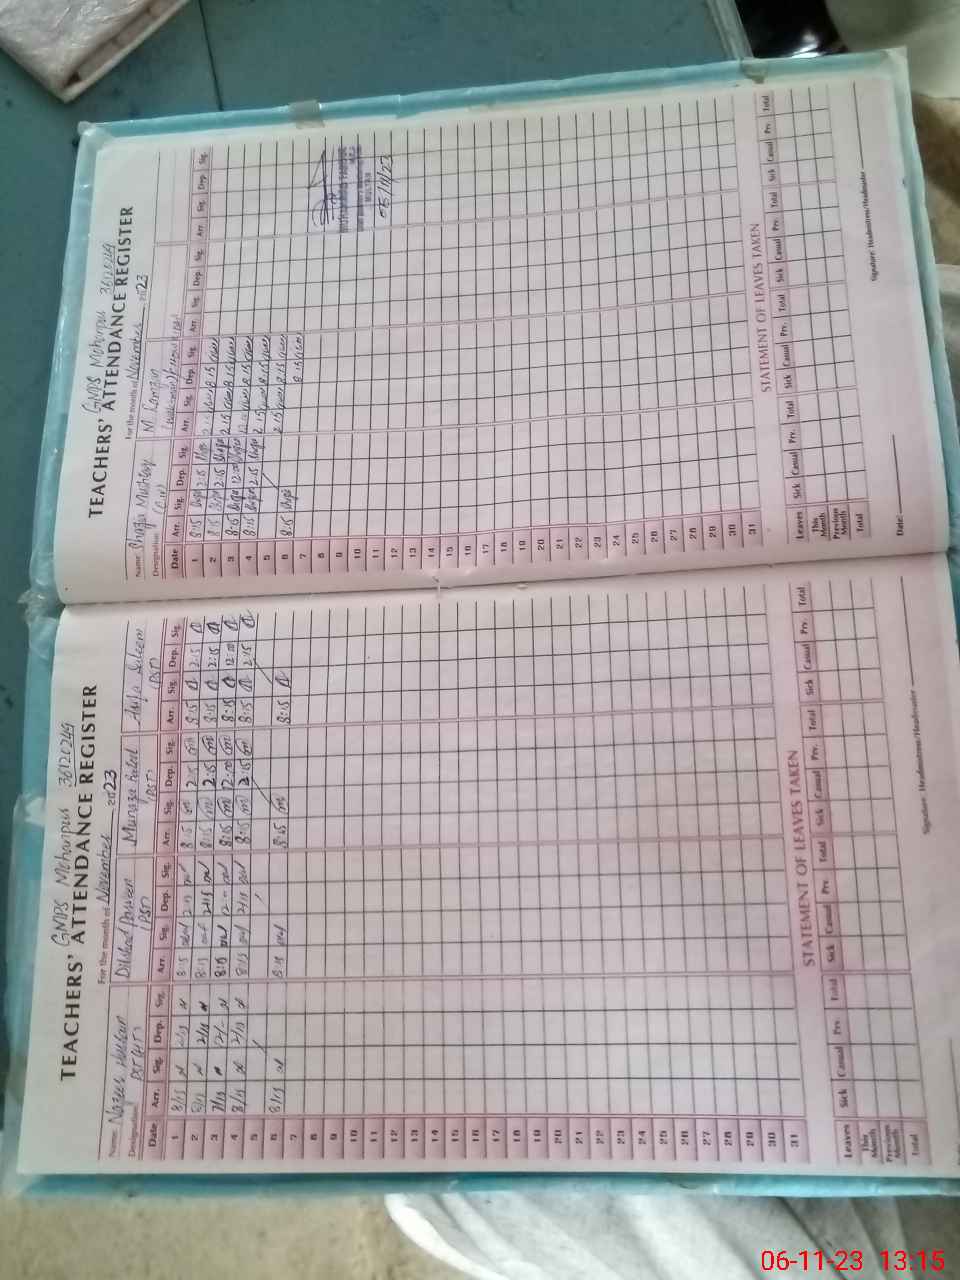 GMPS Mohanpur 36120249
TEACHERS' ATTENDANCE REGISTER
For the month of November 2023
Name Nazeer Hussain Dilshad Parveen Munaza Batool Asifa Saleem
Designation (PST) (PST) (PST)
Date Arr. Sig. Dep. Sig. Arr. Sig. Dep. Sig. Arr. Sig. Dep. Sig. Arr. Sig. Dep. Sig.
1 8/15 2/15 8:15 8:15 2:15 8:15 2:15
2 2/15 8:15 2/15 8:15 2:15 8:15 2:15
3 8:15 8:15 12:00 8:15 12:00
4 8/15 2/15 8:15 2/15 8:15 2:15 8:15 2:15
5
6 8/15 8:15 8:15 8:15
7
8
9
10
11
12
13
14
15
16
17
18
19
20
21
22
23
24
25
26
27
28
29
30
31
STATEMENT OF LEAVES TAKEN
Leaves Sick Casual Prv. Total Sick Casual Prv. Total Sick Casual Prv. Total Sick Casual Prv. Total
This Month
Previous Month
Total
Signature: Headmistress/Headmaster
GMPS Mohanpur 36120249
TEACHERS' ATTENDANCE REGISTER
For the month of November 2023
Name Shazia Mushtaq M. Ramzan
Designation
Date Arr. Sig. Dep. Sig. Arr. Sig. Dep. Sig. Arr. Sig. Dep. Sig. Arr. Sig. Dep. Sig.
1 8:15 2:15 2:15 8:15
2 8:15 2:15 2:15 8:15
3 8:15 12:00 12:00 8:15
4 8:15 2:15 2:15 8:15
5 2:15 8:15
6 8:15 8:15
7
8
9
10
11
12
13
14
15
16
17
18
19
20
21
22
23
24
25
26
27
28
29
30
31
MULTAN
05/11/23
STATEMENT OF LEAVES TAKEN
Leaves Sick Casual Prv. Total Sick Casual Prv. Total Sick Casual Prv. Total Sick Casual Prv. Total
This Month
Previous Month
Total
Date: Signature: Headmistress/Headmaster
06-11-23 13:15